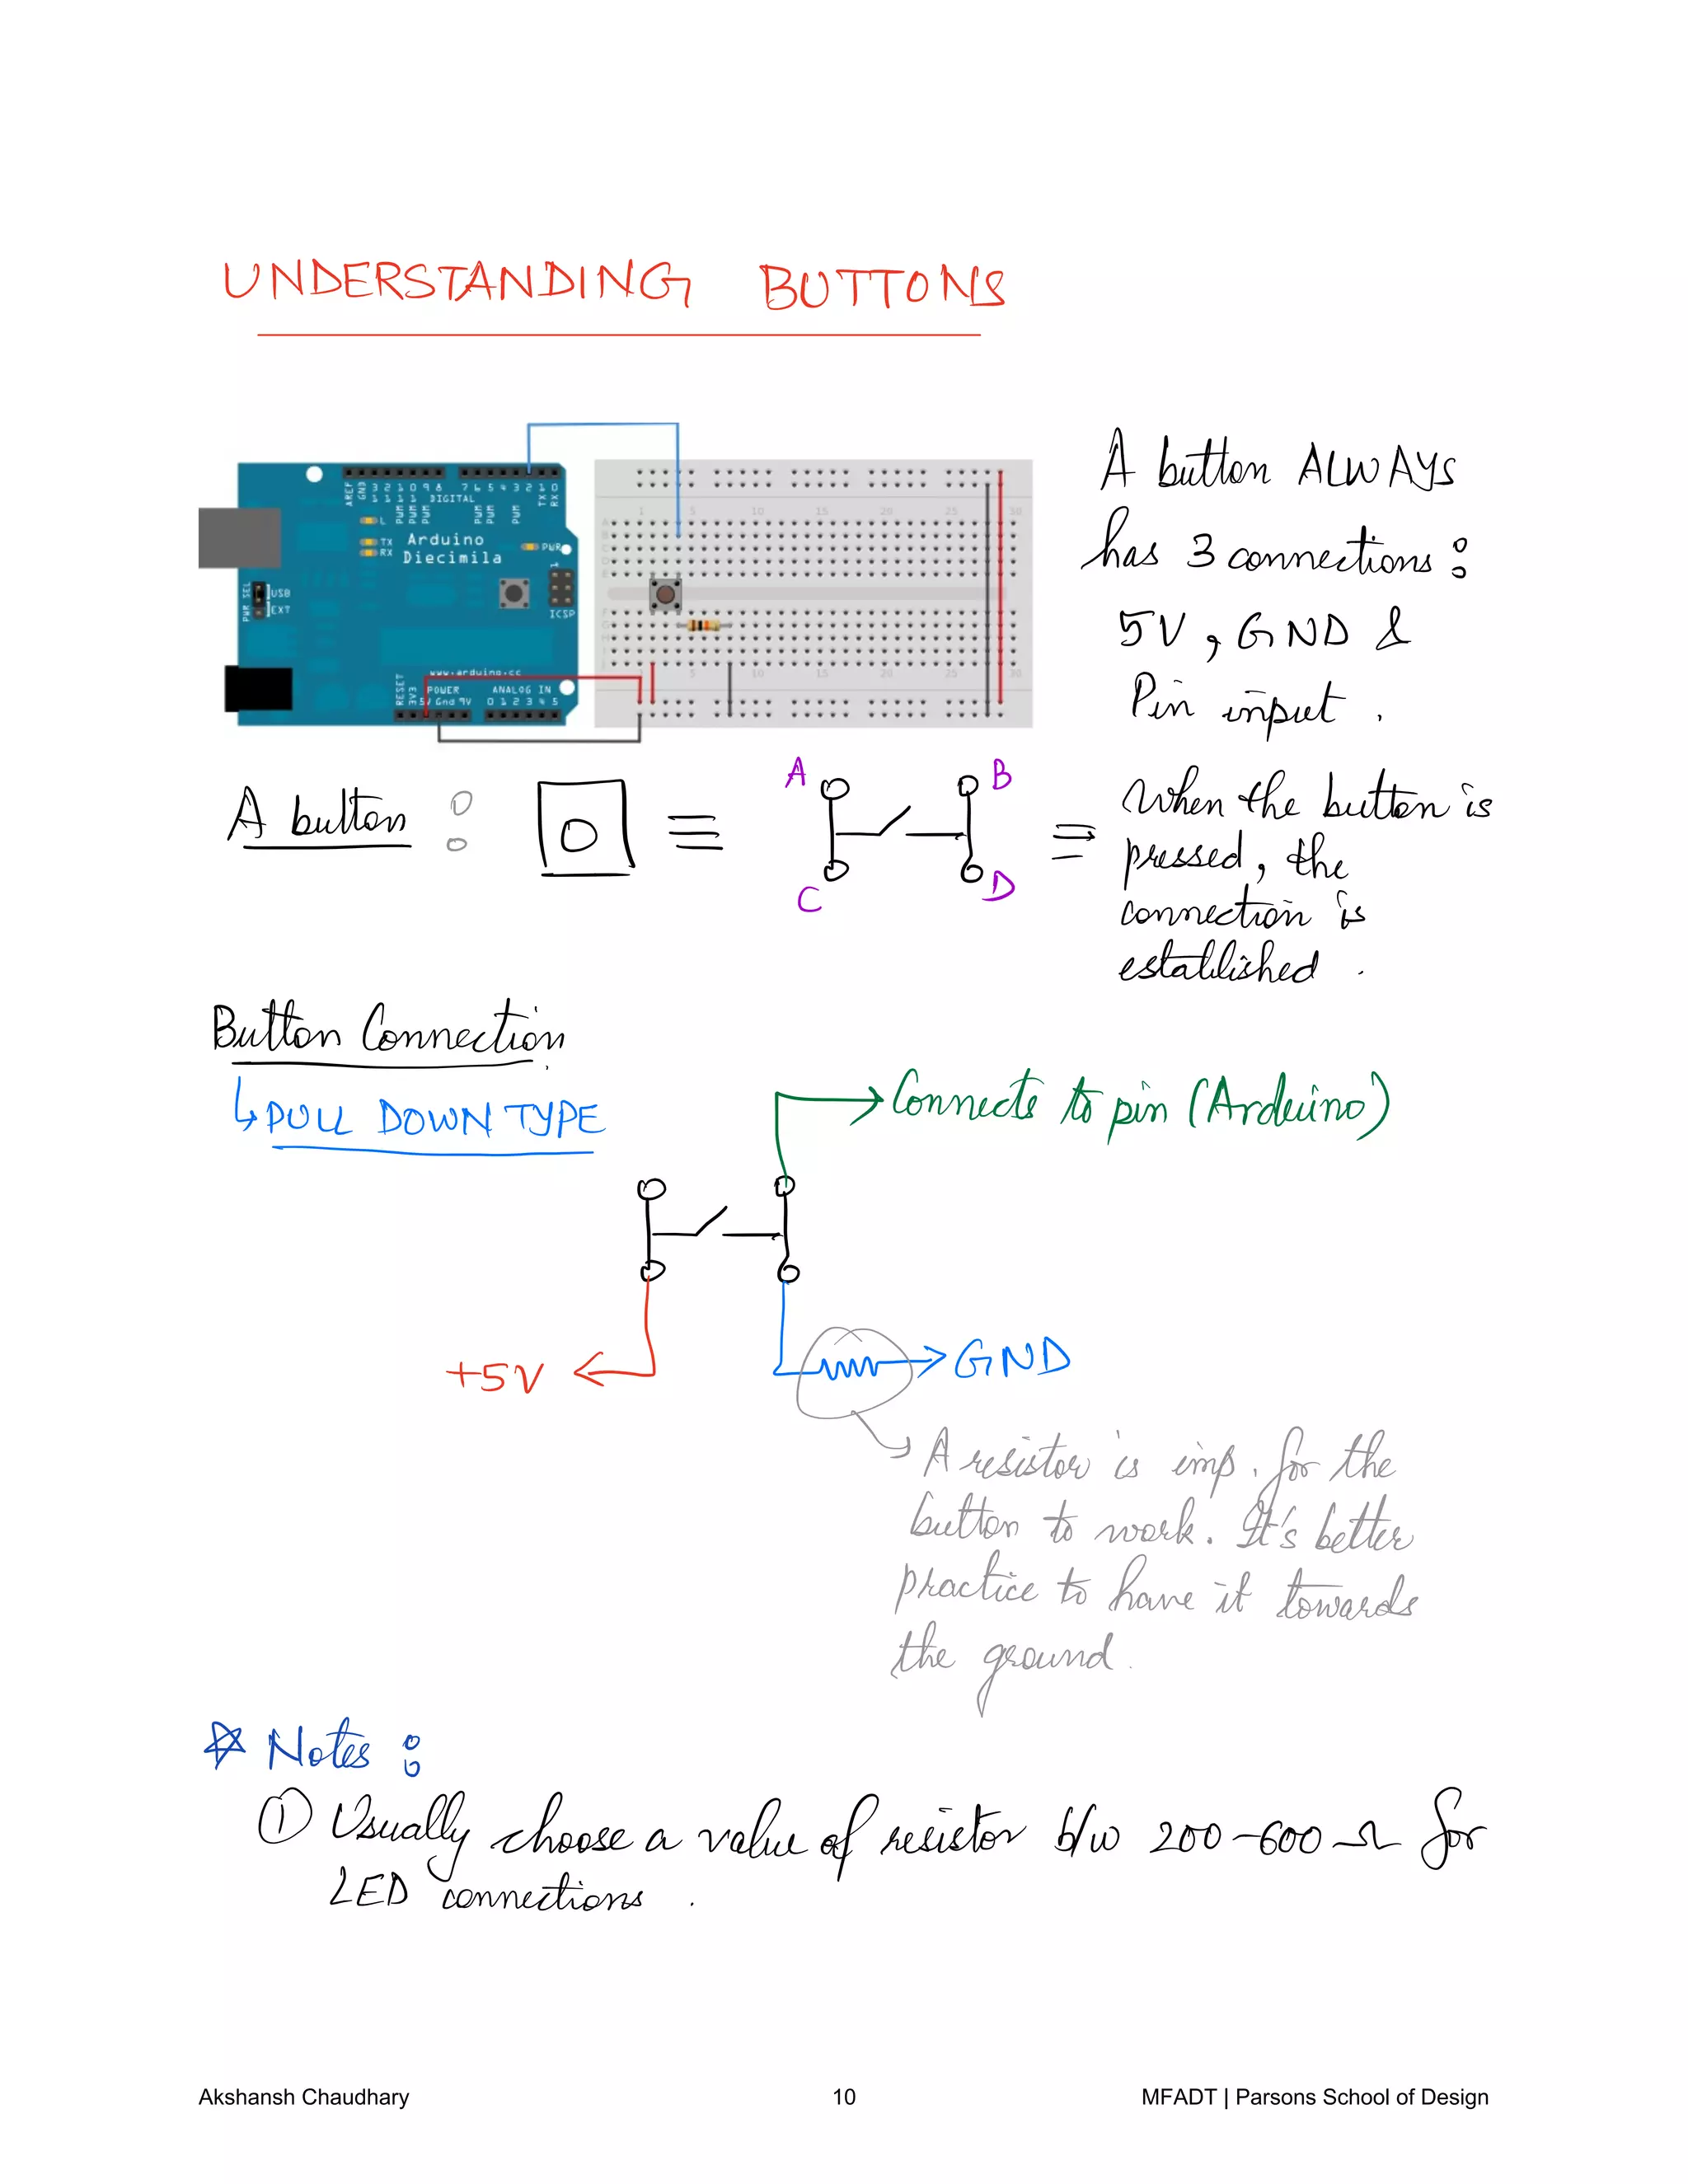 UNDERSTANDING BUTTONS
A button ALWAYS
has 3 connections :
5V, GND &
Pin input .
AREF
GND
13
12
11
10
9
8
7
6
5
4
3
2
TX 1
RX 0
PWM
PWM
PWM
PWM
PWM
PWM
DIGITAL
L
TX
RX
Arduino
Diecimila
PWR
1
ICSP
PWR SEL
USB
EXT
www.arduino.cc
POWER
ANALOG IN
RESET
3V3
5V Gnd 9V
0 1 2 3 4 5
1 5 10 15 20 25 30
1 5 10 15 20 25 30
A button :
O
≡
A
B
C
D
=
When the button is
pressed, the
connection is
established .
Button Connection
↳ PULL DOWN TYPE
→ Connects to pin (Arduino)
+5V ←
→ GND
→ A resistor is imp. for the
button to work. It's better
practice to have it towards
the ground.
☆ Notes :
① Usually choose a value of resistor b/w 200-600 Ω for
LED connections .
Akshansh Chaudhary
10
MFADT | Parsons School of Design